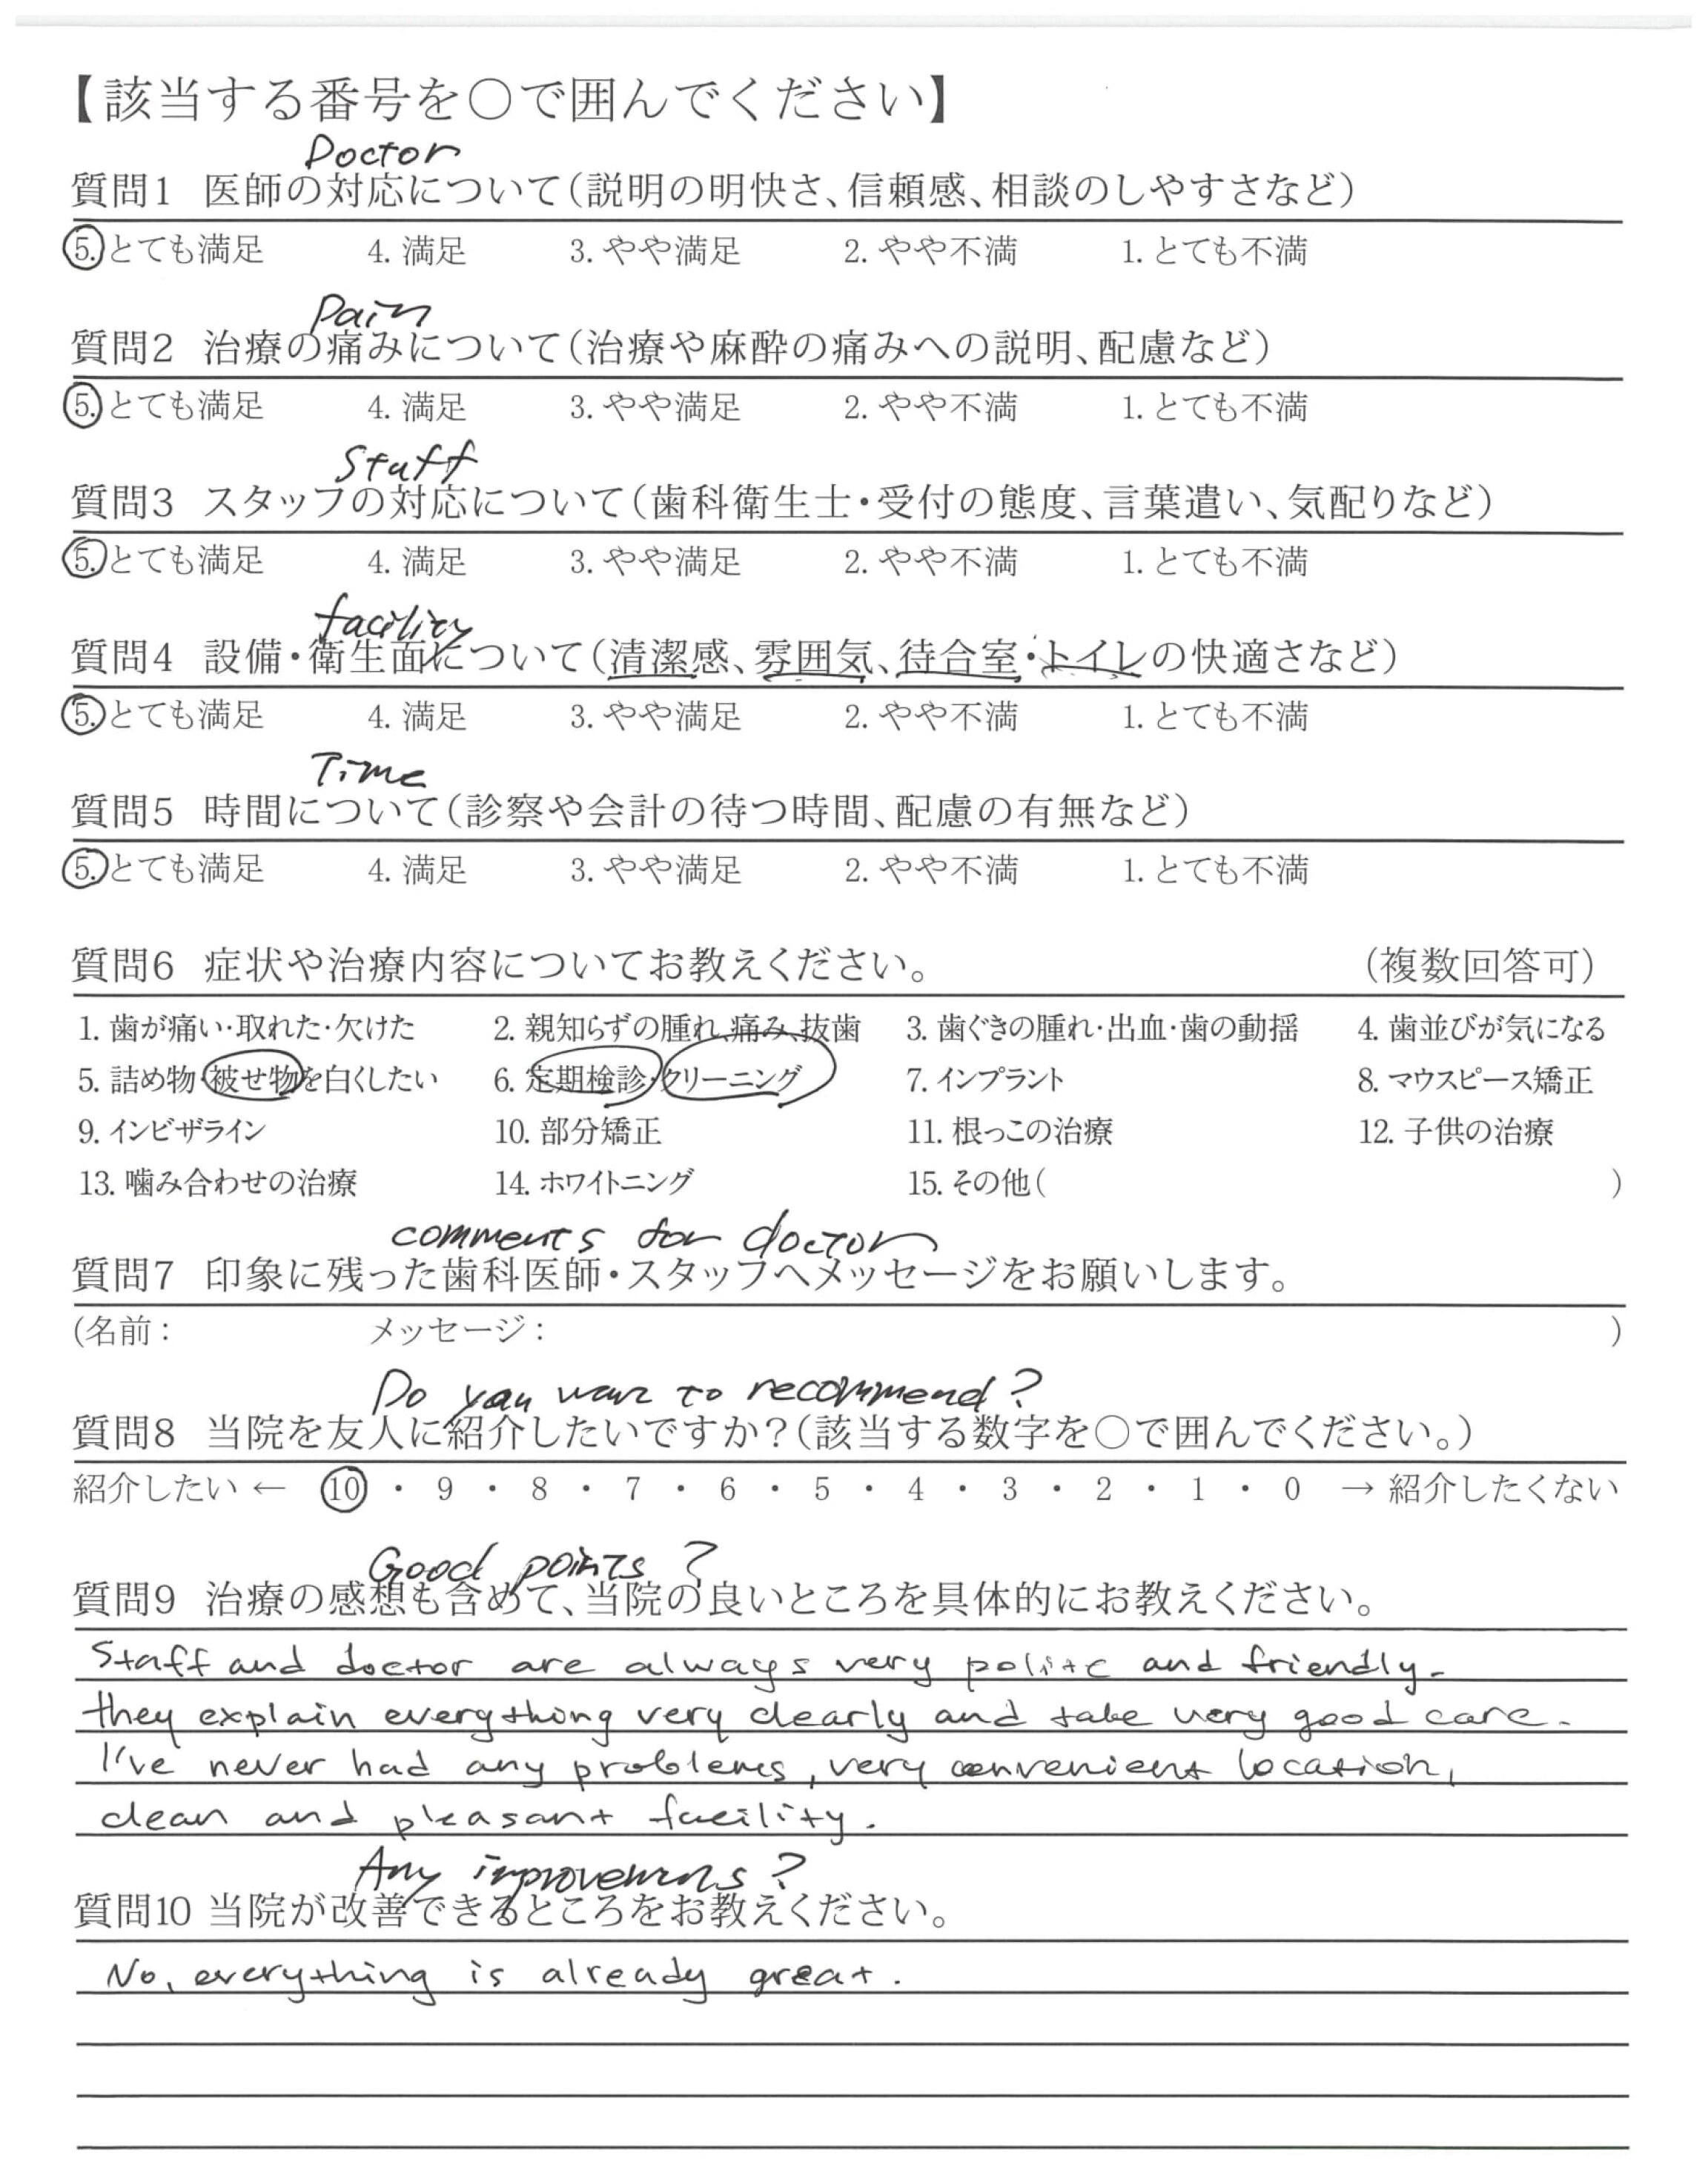 【該当する番号を○で囲んでください】
Doctor
質問1 医師の対応について(説明の明快さ、信頼感、相談のしやすさなど)
5. とても満足 4. 満足 3. やや満足 2. やや不満 1. とても不満
Pain
質問2 治療の痛みについて(治療や麻酔の痛みへの説明、配慮など)
5. とても満足 4. 満足 3. やや満足 2. やや不満 1. とても不満
Staff
質問3 スタッフの対応について(歯科衛生士・受付の態度、言葉遣い、気配りなど)
5. とても満足 4. 満足 3. やや満足 2. やや不満 1. とても不満
facility
質問4 設備・衛生面について(清潔感、雰囲気、待合室・トイレの快適さなど)
5. とても満足 4. 満足 3. やや満足 2. やや不満 1. とても不満
Time
質問5 時間について(診察や会計の待つ時間、配慮の有無など)
5. とても満足 4. 満足 3. やや満足 2. やや不満 1. とても不満
質問6 症状や治療内容についてお教えください。 (複数回答可)
1. 歯が痛い・取れた・欠けた 2. 親知らずの腫れ、痛み、抜歯 3. 歯ぐきの腫れ・出血・歯の動揺 4. 歯並びが気になる
5. 詰め物・被せ物を白くしたい 6. 定期検診・クリーニング 7. インプラント 8. マウスピース矯正
9. インビザライン 10. 部分矯正 11. 根っこの治療 12. 子供の治療
13. 噛み合わせの治療 14. ホワイトニング 15. その他( )
comments for doctor
質問7 印象に残った歯科医師・スタッフへメッセージをお願いします。
(名前： メッセージ： )
Do you want to recommend?
質問8 当院を友人に紹介したいですか？(該当する数字を○で囲んでください。)
紹介したい ← 10 ・ 9 ・ 8 ・ 7 ・ 6 ・ 5 ・ 4 ・ 3 ・ 2 ・ 1 ・ 0 → 紹介したくない
Good points?
質問9 治療の感想も含めて、当院の良いところを具体的にお教えください。
Staff and doctor are always very polite and friendly.
they explain everything very clearly and take very good care.
I've never had any problems, very convenient location,
clean and pleasant facility.
Any improvements?
質問10 当院が改善できるところをお教えください。
No, everything is already great.